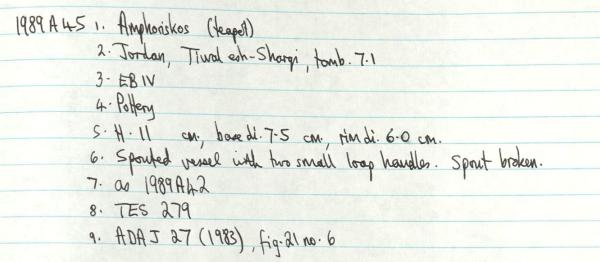 1989A45 1. Amphoriskos (teapot)
2. Jordan, Tiwal esh-Sharqi, tomb. 7.1
3. EB IV
4. Pottery
5. H. 11 cm, base di. 7.5 cm, rim di. 6.0 cm.
6. Spouted vessel with two small loop handles. Spout broken.
7. as 1989A42
8. TES 279
9. ADAJ 27 (1983), fig. 21 no. 6